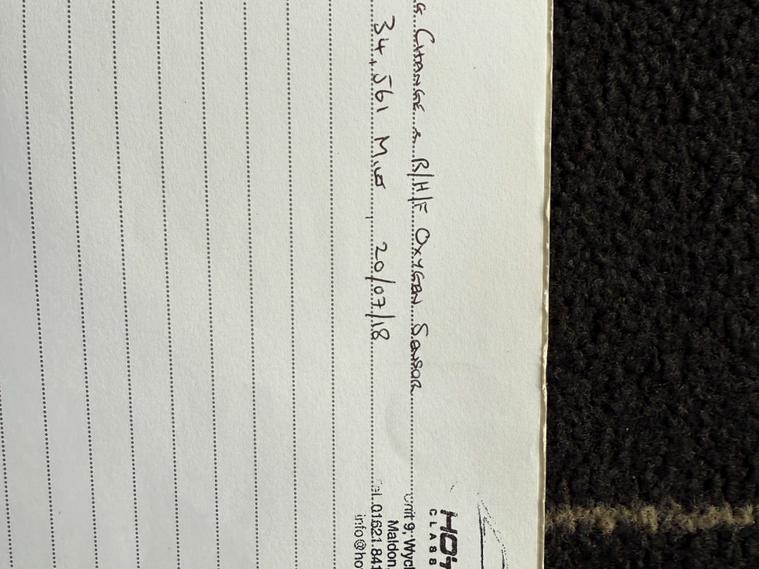 CHANGE & R/H/F OXYGEN SENSOR
34,561 MILES, 20/07/18
HOT
CLASS
Unit 9, Wycl
Maldon,
el. 01621 841
info@ho